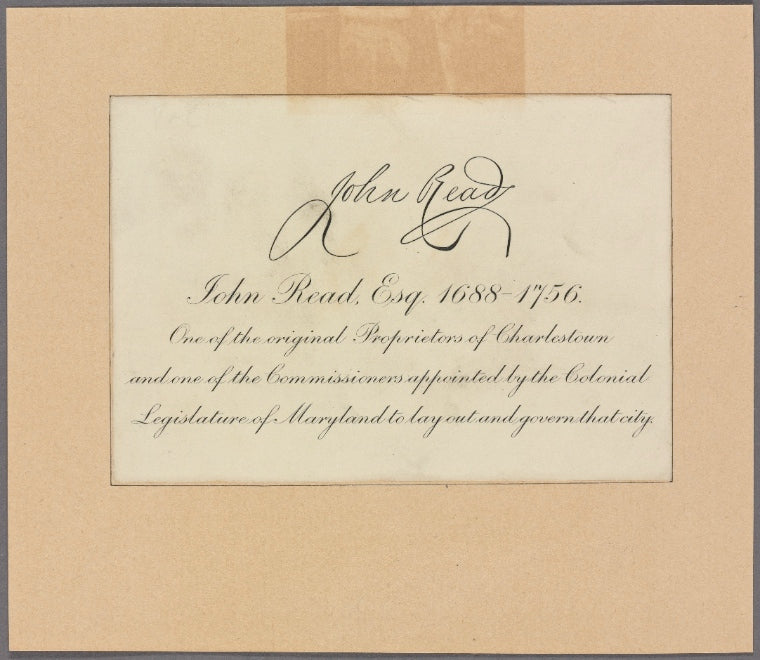 John Read
John Read, Esq. 1688–1756.
One of the original Proprietors of Charlestown
and one of the Commissioners appointed by the Colonial
Legislature of Maryland to lay out and govern that city.